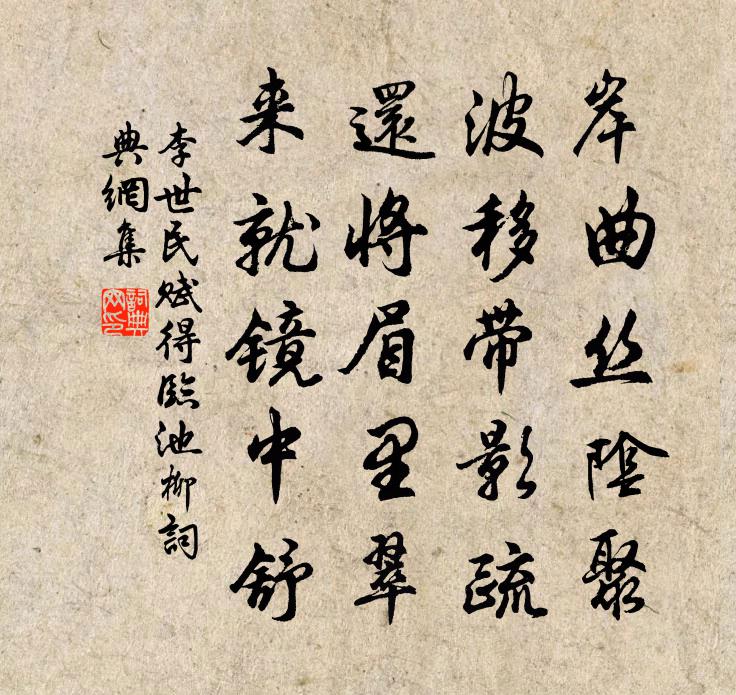 岸曲丝陰聚
波移带影疏
還将眉里翠
来就镜中舒
李世民赋得臨池柳詞
典網集
詞典網印